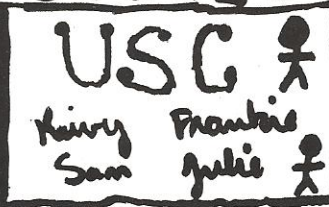 USC
Frankie
Sam Julie